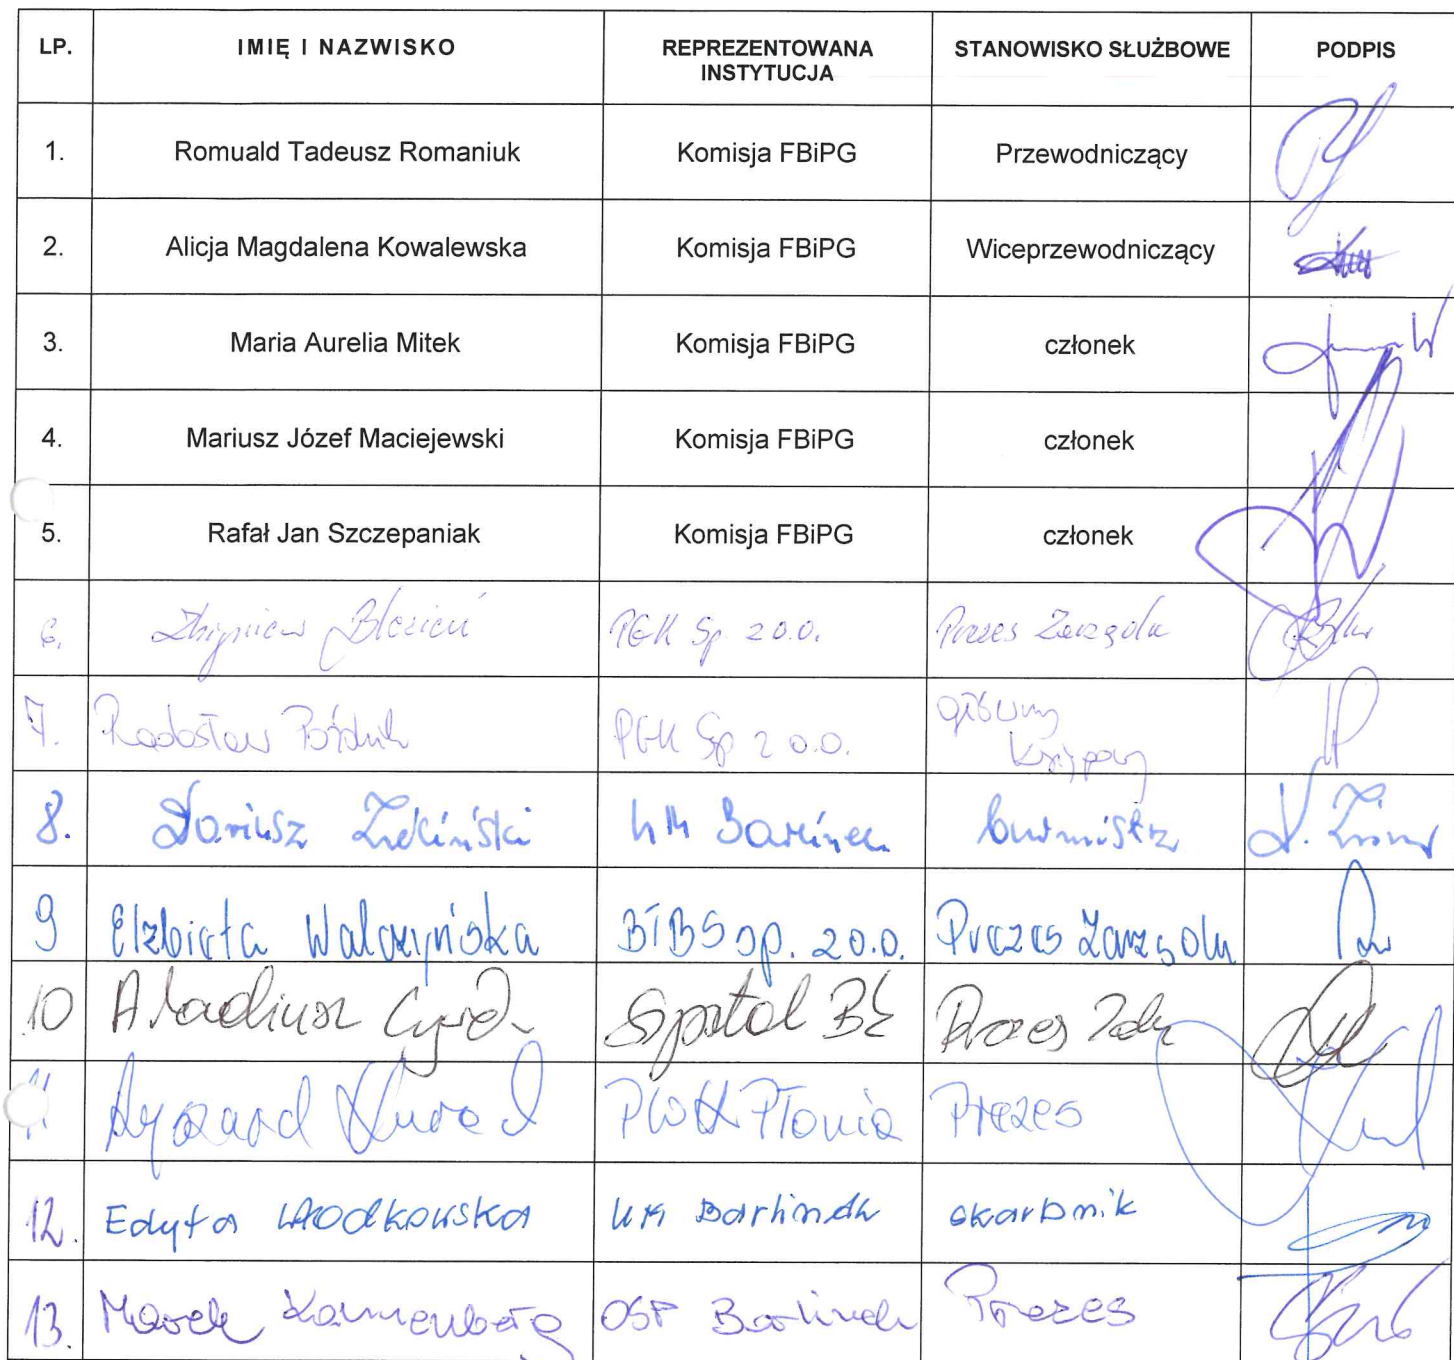 LP. IMIĘ I NAZWISKO REPREZENTOWANA INSTYTUCJA STANOWISKO SŁUŻBOWE PODPIS
1. Romuald Tadeusz Romaniuk Komisja FBiPG Przewodniczący
2. Alicja Magdalena Kowalewska Komisja FBiPG Wiceprzewodniczący
3. Maria Aurelia Mitek Komisja FBiPG członek
4. Mariusz Józef Maciejewski Komisja FBiPG członek
5. Rafał Jan Szczepaniak Komisja FBiPG członek
6. Zbigniew PGK Sp. z o.o. Prezes Zarządu
7. Radosław PGK Sp z o.o. główny księgowy
8. Dariusz Zieliński UM Barlinek burmistrz
9 Elżbieta Walczyńska BTBS sp. z o.o. Prezes Zarządu
10 Arkadiusz Szpital Prezes
11 Ryszard Płonia Prezes
12. Edyta Włodkowska UM Barlinek skarbnik
13. Marek OSP Barlinek Prezes